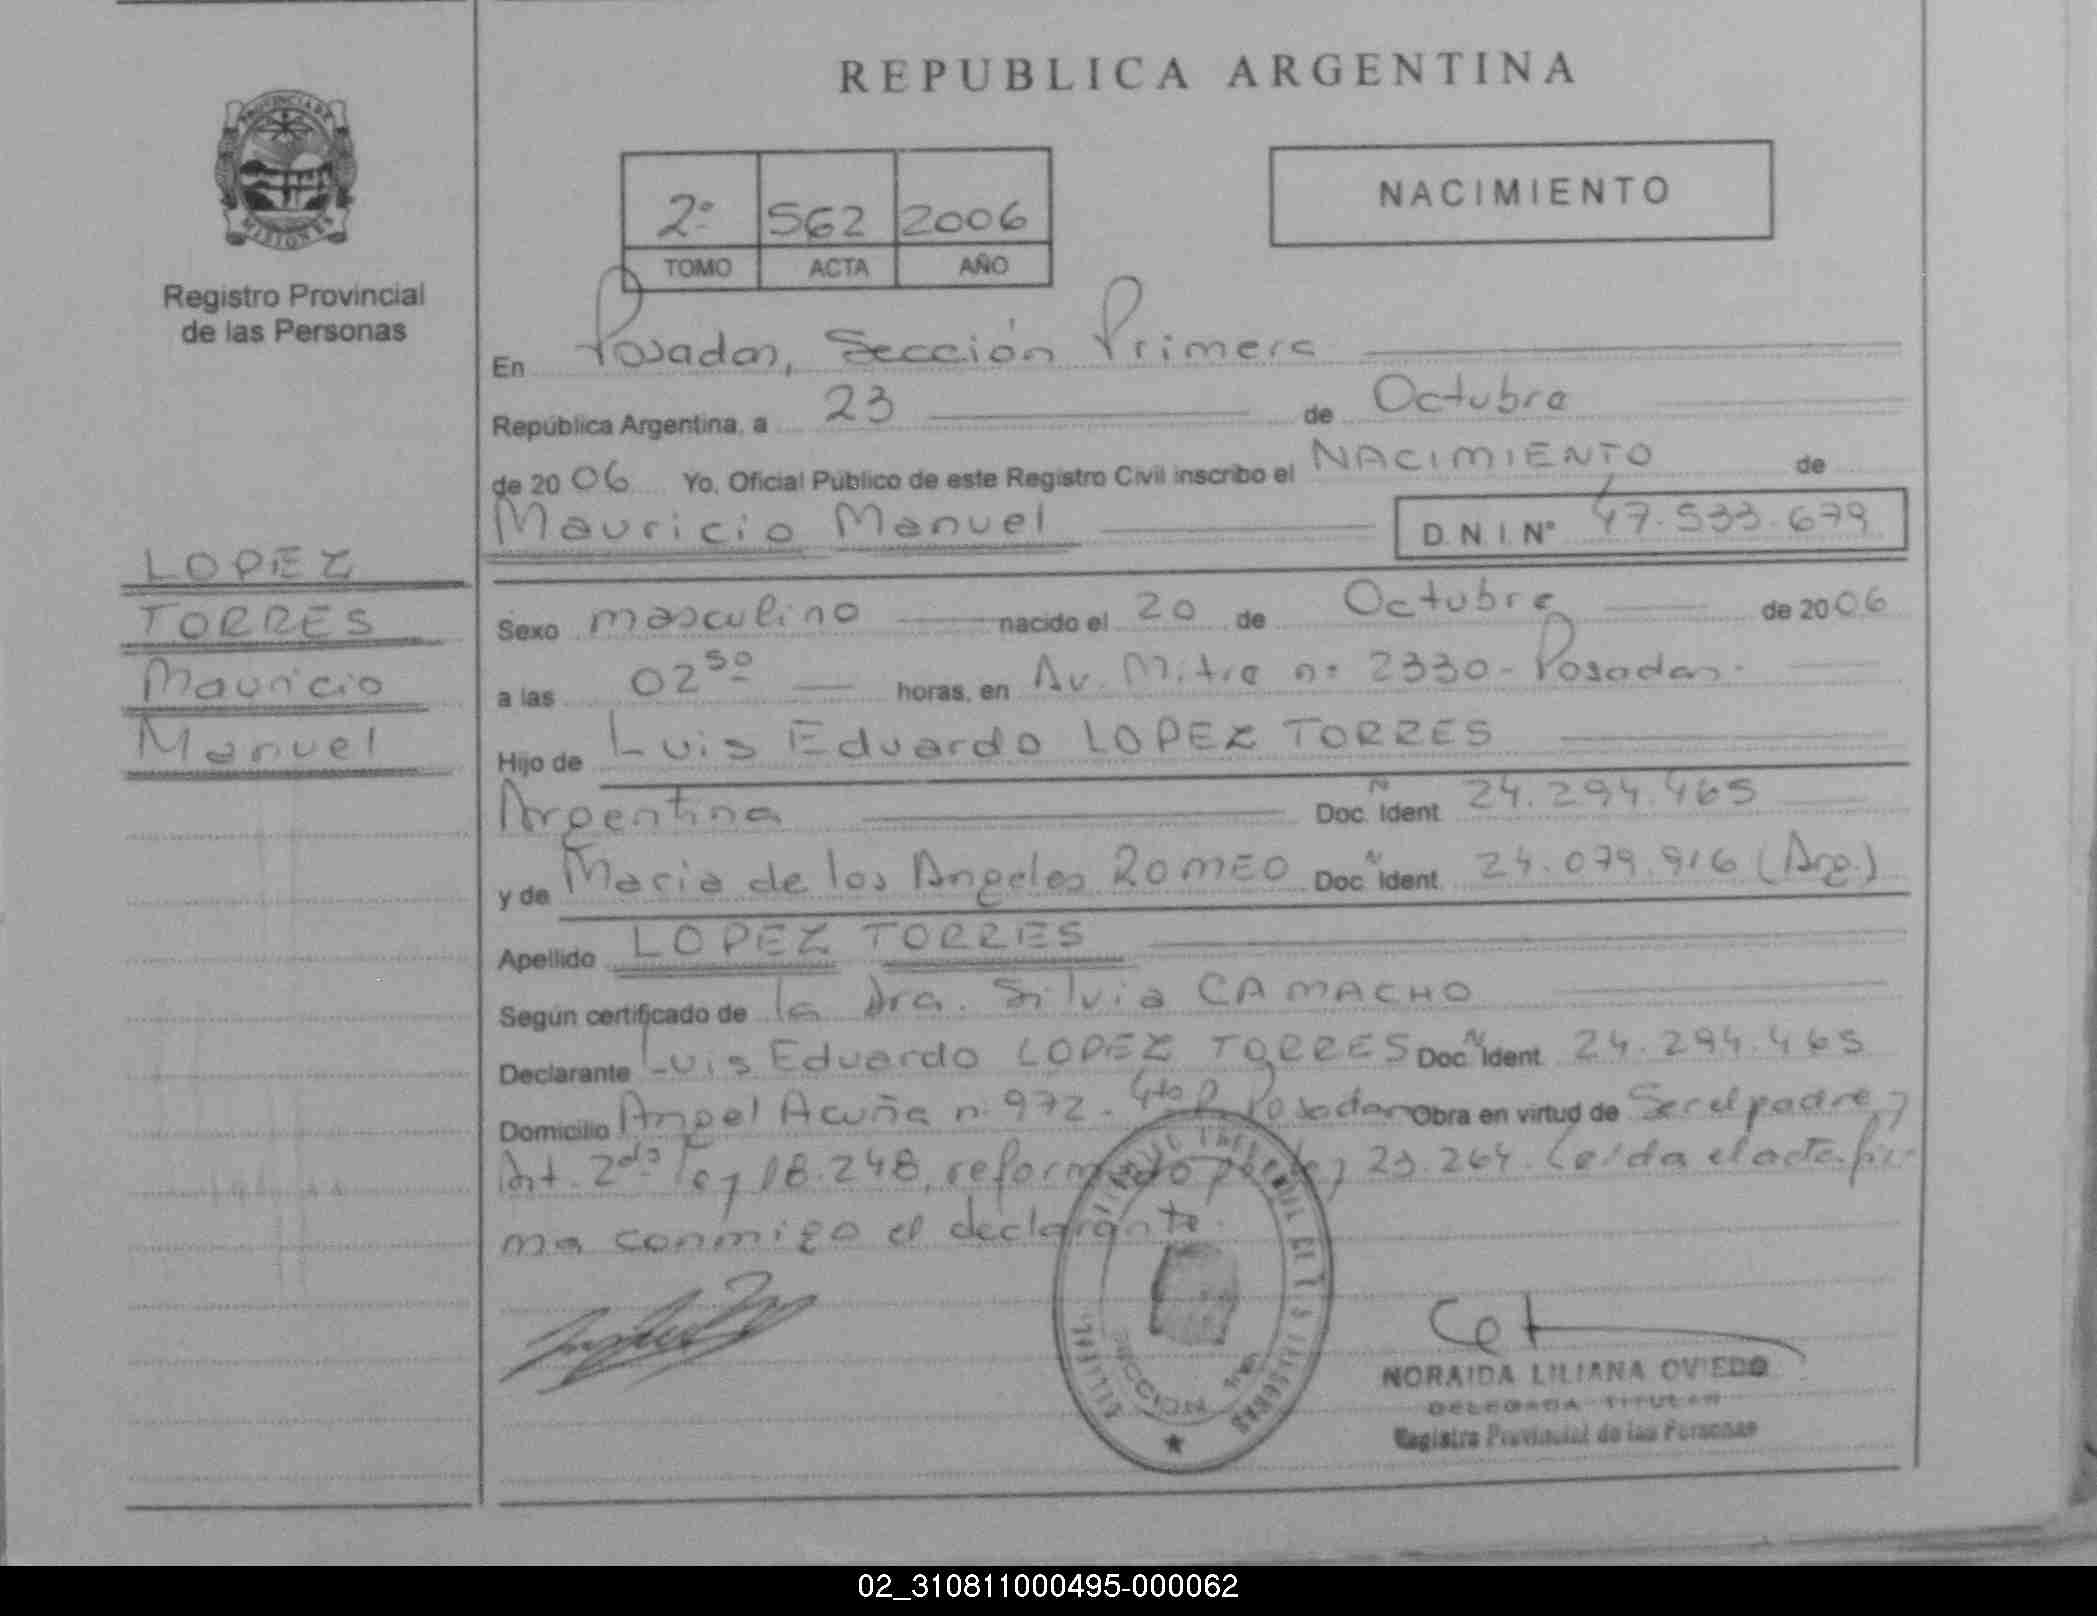 REPUBLICA ARGENTINA
PROVINCIA DE
MISIONES
Registro Provincial
de las Personas
2º 562 2006
TOMO ACTA AÑO
NACIMIENTO
En Posadas, Sección Primera
República Argentina, a 23 de Octubre
de 2006 Yo, Oficial Público de este Registro Civil inscribo el NACIMIENTO de
Mauricio Manuel D.N.I. Nº 47.533.679
LOPEZ
TORRES
Mauricio
Manuel
Sexo masculino nacido el 20 de Octubre de 2006
a las 02 50 horas, en Av. Mitre nº 2330 - Posadas.
Hijo de Luis Eduardo LOPEZ TORRES
Argentina Doc. N Ident 24.294.465
y de Maria de los Angeles ROMEO Doc. N Ident 24.079.916 (Arg.)
Apellido LOPEZ TORRES
Según certificado de la Dra. Silvia CAMACHO
Declarante Luis Eduardo LOPEZ TORRES Doc. N Ident 24.294.465
Domicilio Angel Acuña nº 972 - Posadas Obra en virtud de Ser el padre y
Art. 2do Ley 18.248, reformado por Ley 23.264. Leída el acta fir-
ma conmigo el declarante.
NORAIDA LILIANA OVIEDO
DELEGADA TITULAR
Registro Provincial de las Personas
02_310811000495-000062